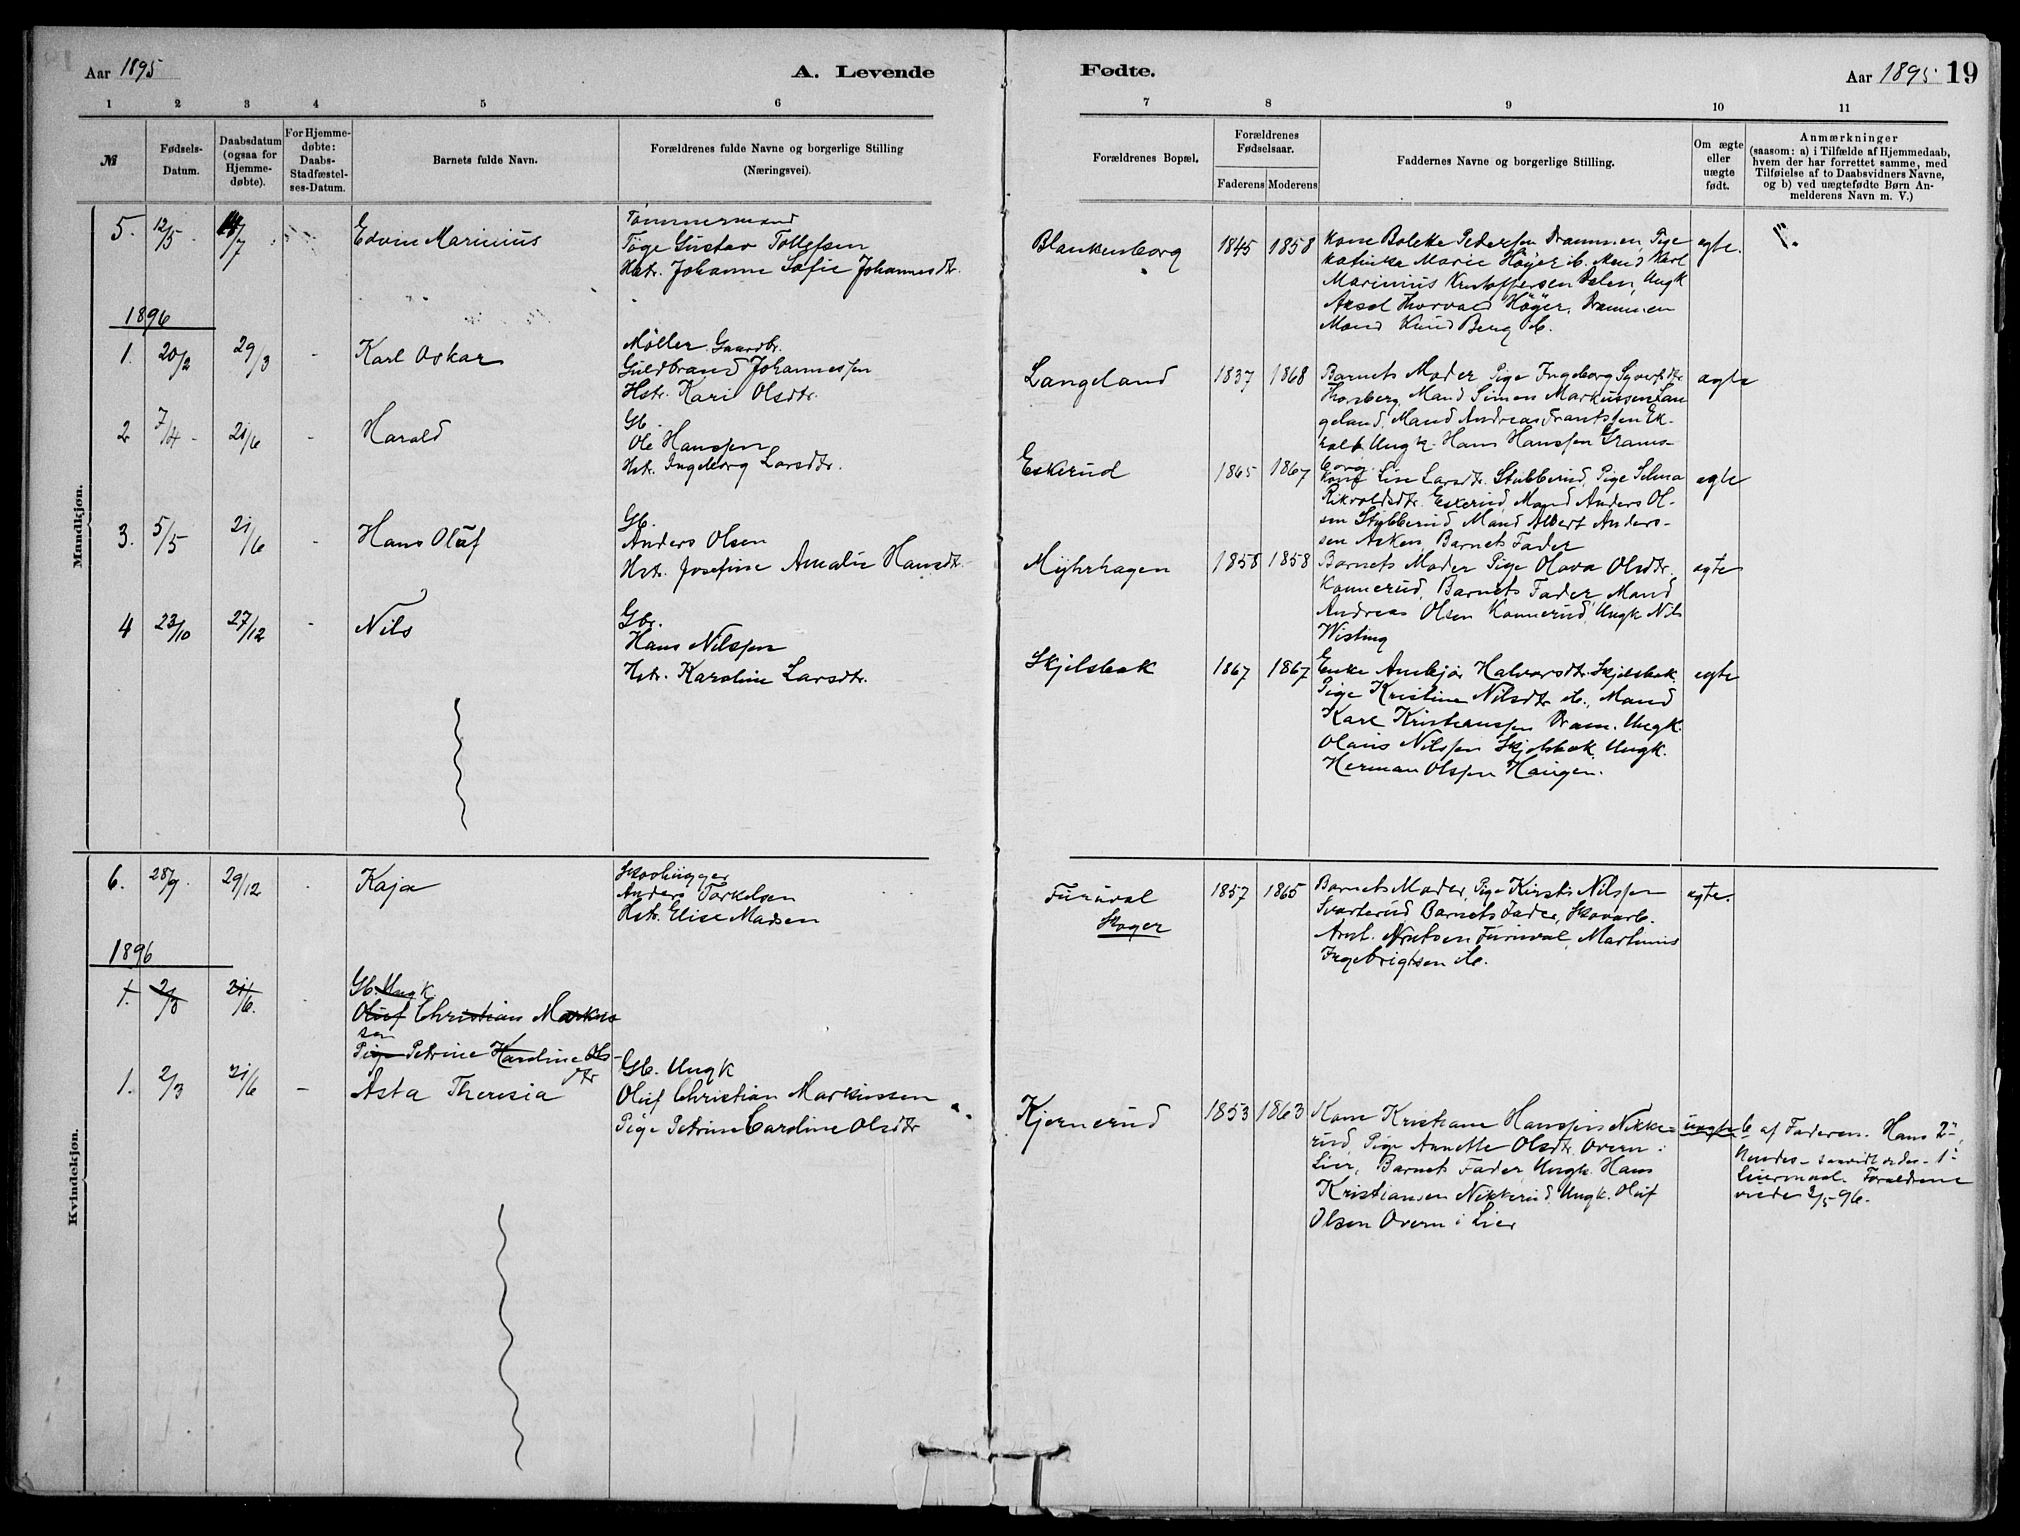 Aar 1895
A. Levende
Fødte.
Aar 1895. 19
1 2 3 4 5 6
7 8 9 10 11
№
Fødsels-
Datum.
Daabsdatum
(ogsaa for
Hjemme-
døbte).
For Hjemme-
døbte:
Daabs-
Stadfæstel-
ses-Datum.
Barnets fulde Navn.
Forældrenes fulde Navne og borgerlige Stilling
(Næringsvei).
Forældrenes Bopæl.
Forældrenes
Fødselsaar.
Faderens Moderens
Faddernes Navne og borgerlige Stilling.
Om ægte
eller
uægte
født.
Anmærkninger
(saasom: a) i Tilfælde af Hjemmedaab,
hvem der har forrettet samme, med
Tilføielse af to Daabsvidners Navne,
og b) ved uægtefødte Børn An-
melderens Navn m. V.)
Mandkjøn.
5. 12/5 /7 Edvin Marinius
Tømmermand
Tøge Gustav Tollefsen
Hstr. Johanne Sofie Johannesdtr.
Blankenborg 1845 1858
Kone Bolette Pedersen Drammen, Pige
Katinka Marie Høyer ib. Mand Karl
Marinius Kristoffersen Dalen, Ungk
Aksel Thorvald Höÿer, Drammen
Mand Knud Berg ib.
ægte.
1896
1. 20/2 29/3 - Karl Oskar
Møller Gaardbr.
Guldbrand Johannessen
Hstr. Kari Olsdtr.
Langeland 1837 1868
Barnets Moder Pige Ingeborg Syversdtr
Thorsberg, Mand Simon Markussen Lan
geland, Mand Andreas Frantssen Ek-
holt Ungk. Hans Hanssen Grams-
borg.
ægte
2 7/4 - 21/6 - Harald
Gb.
Ole Hanssen
Hstr. Ingeborg Larsdtr.
Eskerud 1865 1867
Kone Lise Larsdtr. Stubberud, Pige Selma
Rikvoldsdtr. Eskerud, Mand Anders Ol-
sen Stubberud, Mand Albert Anders-
sen Asken, Barnets Fader
ægte
3. 5/5 21/6 - Hans Oluf
Gb.
Anders Olsen
Hstr. Josefine Amalie Hansdtr.
Myhrhagen 1858 1858
Barnets Moder Pige Olava Olsdtr.
Konnerud, Barnets Fader, Mand
Andreas Olsen Konnerud, Ungk Nils
Wisting
ægte
4 23/10 27/12 - Nils
Gbr.
Hans Nilssen
Hstr. Karoline Larsdtr.
Skjelsbæk 1867 1867
Enke Anbjør Halvorsdtr. Skjelsbæk
Pige Kristine Nilsdtr ib., Mand
Karl Kristianssen Dram. Ungk.
Olaus Nilssen Skjelsbæk Ungk.
Herman Olssen Haugen.
ægte
Kvindekjøn.
6. 28/9. 29/12 - Kaja
Skovhugger
Anders Torkelsen
Hstr. Elise Madsen
Furuval
Skoger
1857 1865
Barnets Moder, Pige Kirsti Nilssen
Svarterud, Barnets Fader, Skovarb.
Arnt. Arntsen Furuval, Martinius
Ingebrigtsen ib.
ægte.
1896
1. 2/3 21/6. - Gb. Ungk
Oluf Christian Markus
sen
Pige Petrine Karoline Ols-
dtr
1. 2/3 21/6 - Asta Theresia
Gb. Ungk
Oluf Christian Markussen
Pige Petrine Caroline Olsdtr
Kjernerud 1853 1863
Kone Kristiane Hanssen Nikke=
rud, Pige Annette Olsdtr. Overn i
Lier, Barnets Fader, Ungk. Hans
Kristiansen Nikkerud, Ungk. Oluf
Olsen Overn i Lier
uægte
b af Faderen. Hans 2det,
hendes - saavidt vides - 1ste
Leiermaal. Forældrene
viede 2/5 96.